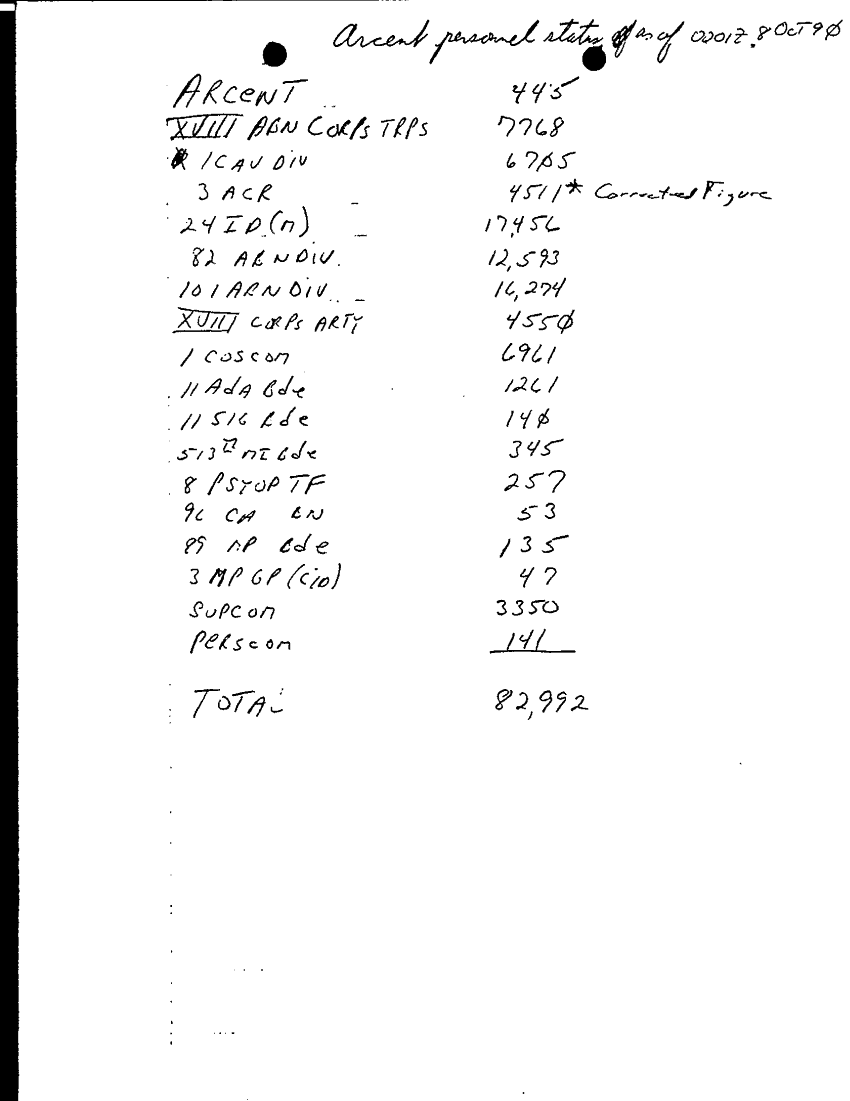 Arcent personnel status as of 0001Z 8 Oct 90
ARCENT 445
XVIII ABN CORPS TRPS 7768
1 CAV DIV 6705
3 ACR 4511* Corrected Figure
24 ID (M) 17,456
82 ABN DIV. 12,593
101 ABN DIV 16,274
XVIII CORPS ARTY 4550
1 COSCOM 6961
11 ADA Bde 1261
11 SIG Bde 140
513th MI Bde 345
8 PSYOP TF 257
96 CA BN 53
89 MP Bde 135
3 MP GP (CID) 47
SUPCOM 3350
PERSCOM 141
TOTAL 82,992